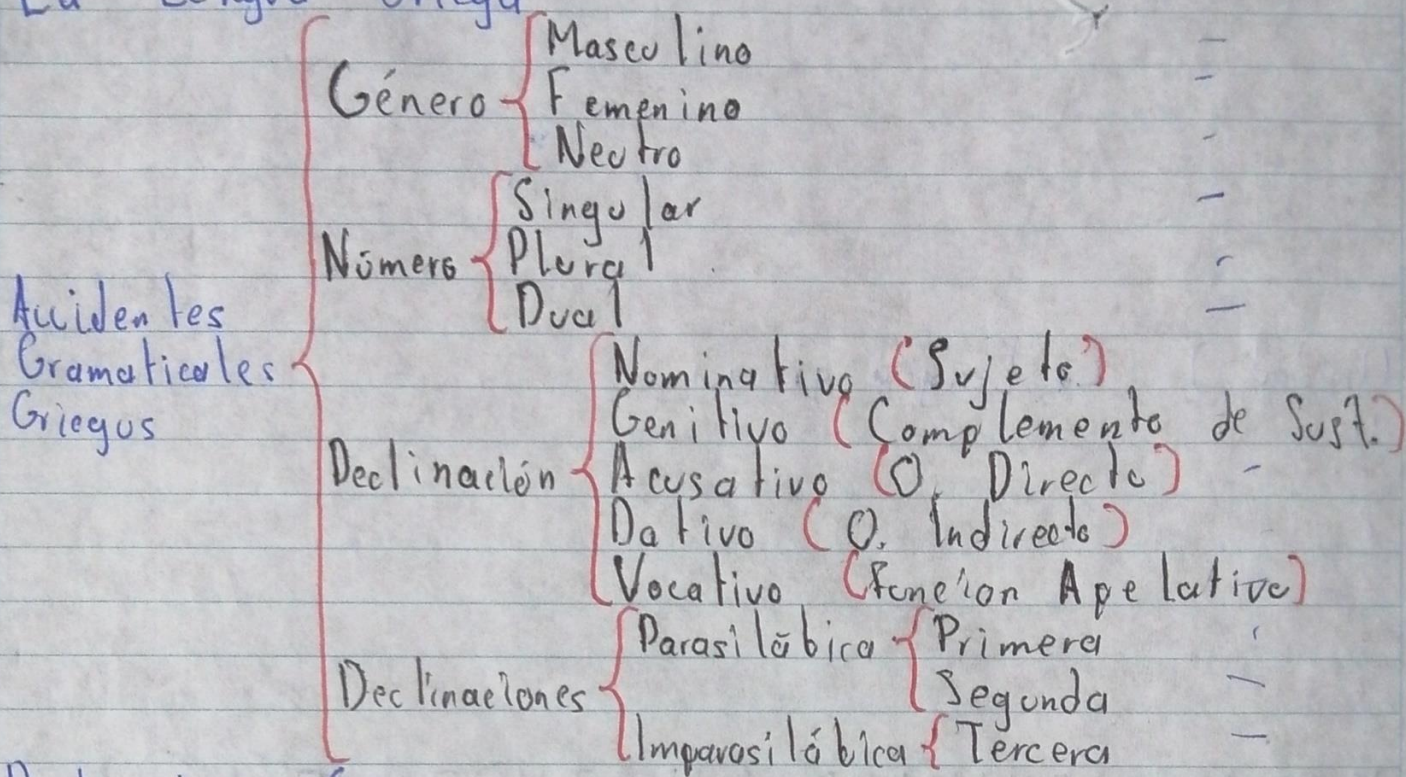 La Lengua Griega
Género { Masculino
Femenino
Neutro
Número { Singular
Plural
Dual
Accidentes
Gramaticales
Griegos
Declinación { Nominativo (Sujeto)
Genitivo (Complemento de Sust.)
Acusativo (O. Directo)
Dativo (O. Indirecto)
Vocativo (Función Apelativa)
Declinaciones { Parasilábica { Primera
Segunda
Imparasilábica { Tercera